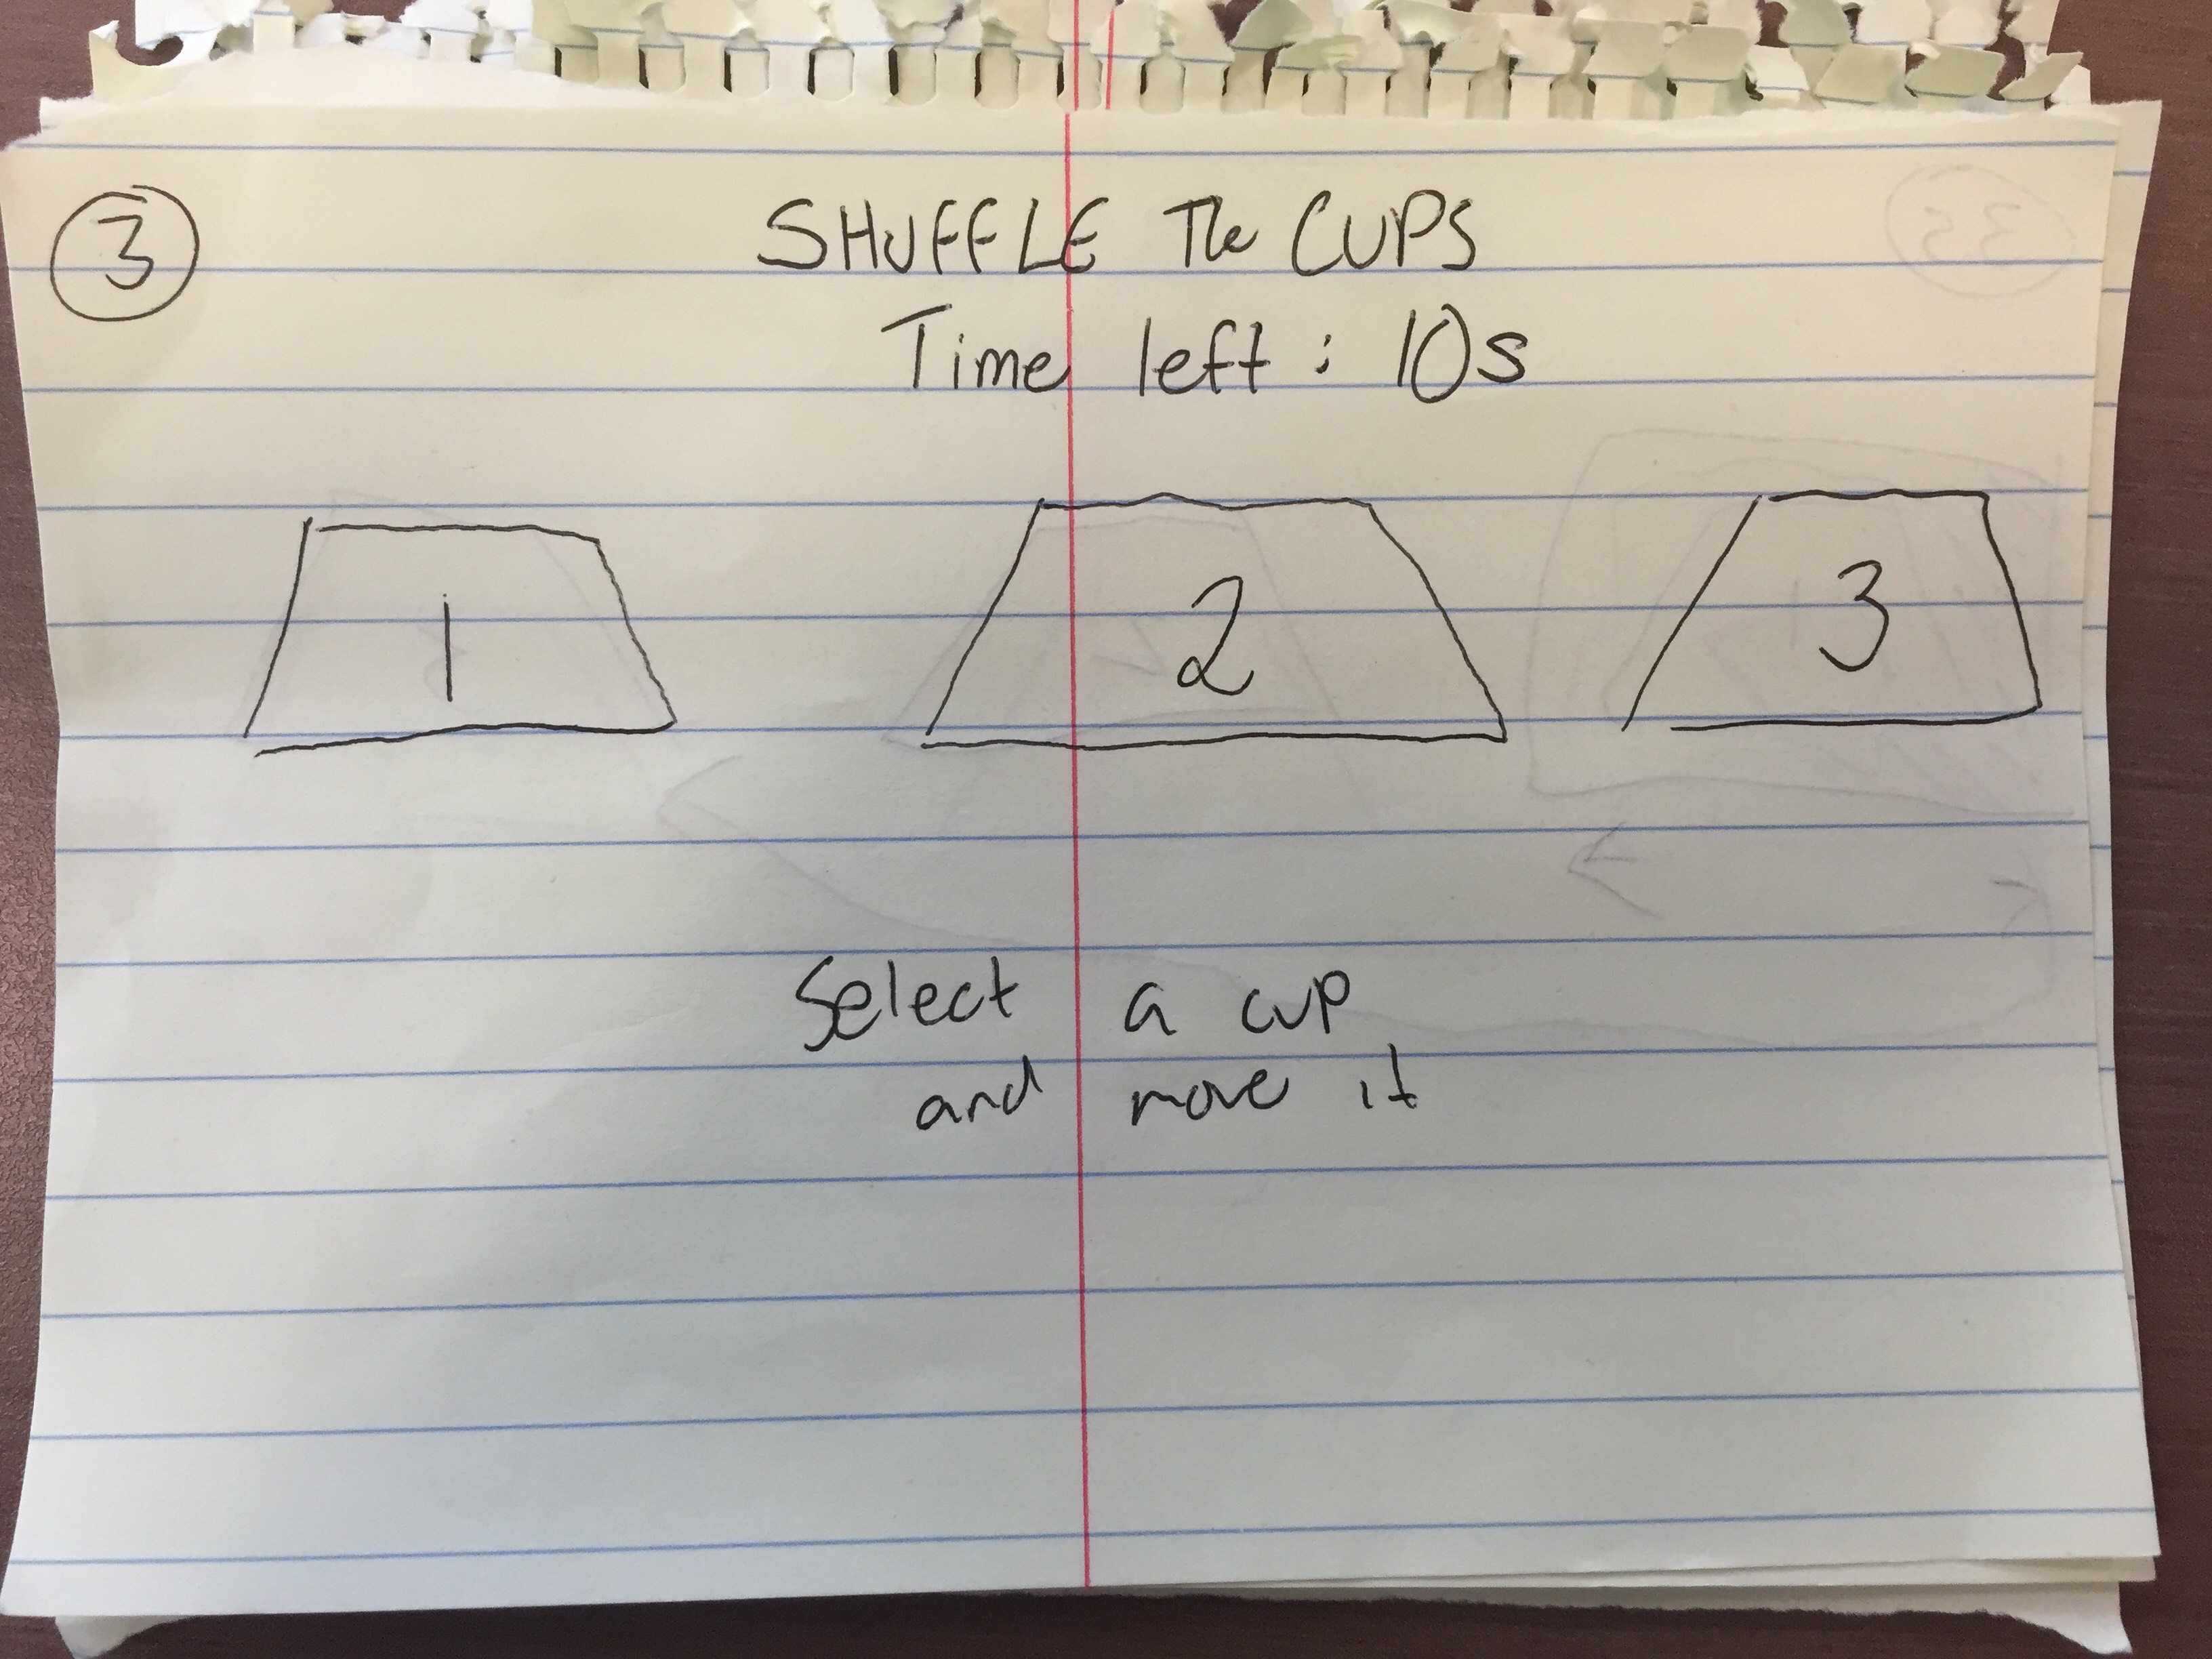 3
SHUFFLE The CUPS
Time left : 10s
1 2 3
Select a cup
and move it